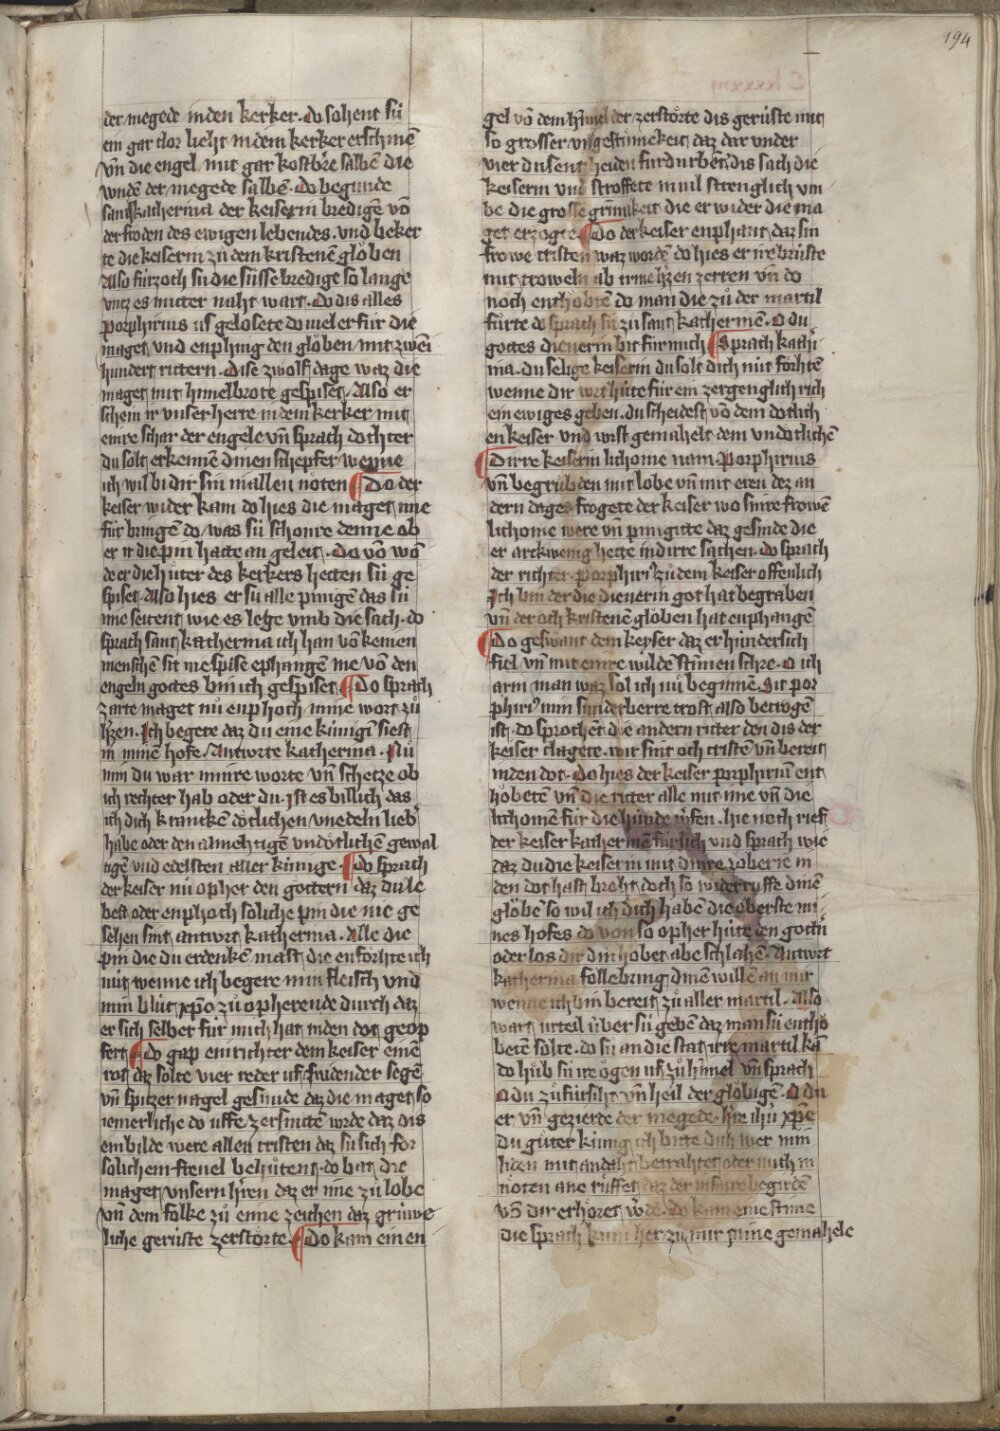 194
der megede in den kerker · do sohent sü
ein gar clor lieht in dem kerker erschinē
vn̄ die engel mit gar kostbre salbē die
wndē der megede salbē · do begunde
sant katherina der keiserin bredigē vō
der froden des ewigen lebendes · vnd beker
te die keiserin zů dem kristenē globen
Also fürzoch sü die süsse bredige so lange
vntz es mitter naht wart · do dis alles
porphirius us gelosete do viel er für die
maget vnd enphing den globen mit zwei
hundert rittern · Dise zwolf dage waz die
maget mit himelbrote gespiset · Also er
schein ir vnser herre in dem kerker mit
einre schar der engele vn̄ sprach dochter
du solt erkennē dinen schepfer wenne
ich wil bi dir sin in allen nöten Do der
keiser wider kam do hies die maget ime
für bringē do was sü schonre denne ob
er ir die pin hatte an geleit · Do vō wō
de er die hüter des kerkers hetten sü ge
spiset · also hies er sü alle pinigē das sü
ime seitent wie es lege vmb die sach · do
sprach sant katherina ich han vō keinen
menschē sit me spise ephangē me vō den
engeln gottes bin ich gespiset Do sprach
zarte maget nů enphoch mine wort zů
h̄zen · Ich begere daz du eine künigī siest
in minē hofe · Antworte katherina · Nů
nim du war minre worte vn̄ schetze ob
ich rechter hab oder du · ist es billich das
ich dich krancken dötlichen vnedeln lieb
habe oder den almehtigen vndötlichē gewal
tigē vnd edelsten aller künige · do sprach
der keiser nů opher den gottern daz du le
best oder enphoch soliche pin die nie ge
sehen sint antwrt katherina · Alle die
pin die du erdenkē maht die enförhte ich
nüt wenne ich begere min fleisch vnd
min blůt xp̄o zů opherende durch daz
er sich selber für mich hat in den dot geop
fert do gap ein richter dem keiser einē
rot daz solte vier reder uf swidender segē
vn̄ spitzer nagel gesmide daz die maget so
iemerliche do uffe zersnittē wrde daz dis
ein bilde were allen cristen daz sü sich for
solichem frenel behůtent · do bat die
maget vnsern h̄ren daz er ime zů lobe
vn̄ dem folke zů eime zeichen daz grüwe
liche gerüste zerstorte · Do kam ein en
gel vō dem himel der zerstörte dis gerüste mit
so grosser vngestimekeit daz dar vnder
vier dusent heiden furdurbēt · dis sach die
keiserin vnd stroffete in vil strenglich vm
be die grosse grimikeit die er wider die ma
get erzogte Do der keiser enphant daz sin
frowe cristen waz wordē do hies er ire brüste
mit troweln ab irme h̄zen zerren vn̄ do
noch enthobtē do man die zů der martil
fürte do sprach sü zů sant katherinē · O du
gottes dienerin bit für mich Sprach kathi
rina · du selige keiserin du solt dich nüt förhtē
wenne dir wrt hüte für ein zergenglich rich
ein ewiges geben · du scheidest vō dem dotlich
en keiser vnd wist gemahelt dem vndotlichē
Dirre keiserin lichome nam porphirius
vn̄ begrub den mit lobe vn̄ mit eren dez an
dern dages frogete der keiser wo sinre frowē
lichome were vn̄ pinigitte daz gesinde die
er arckwenig hette in dirre sachen · do sprach
der richter porphiri⁹ zů dem keiser offenlich
Ich bin der die dienerin got hat begraben
vn̄ der och kristenē globen hat enphangē
Do geswant dem keyser daz er hindersich
fiel vn̄ mit einre wilde stimen schre · O ich
arm man waz sol ich nů beginnē · Sit por
phiri⁹ min sunderberre trost also betrogē
ist · do sprochēt die andern ritter den dis der
keiser clagete · wir sint och cristē vn̄ bereit
in den dot · do hies der keiser porphiriū ent
höbetē vn̄ die ritter alle mit ime vn̄ die
lichomē für die hunde wfen · hie noch rief
der keiser katherinē für sich vnd sprach wie
daz du die keiserin mit dinre zoberie in
den dot hast broht doch so widerruffe dinē
glöbē so wil ich dich habē die oberste mi
nes hofes do von so opher hüte den gottē
oder los dir din hobet abe schlahē · Antwrt
katherina follebring dinē willē an mir
wenne ich bin bereit zů aller martil · Also
wart urteil über sü gebē daz man sü enthö
betē solte · do sü an die stat irre martil kā
do hůb sü ire ogen uf zů himel vn̄ sprach
O du zůfürsiht vn̄ heil der glöbigē · O du
er vn̄ gezierde der megede · h̄re ih̄u xp̄e
du gůter künig ich bitte dich wer min
liden mit andaht betrahtet oder mich in
nöten ane rüffet daz der in sinre begirdē
vō dir erhöret w̄de · do kam eine stime
die sprach kum her zů mir mine gemahele